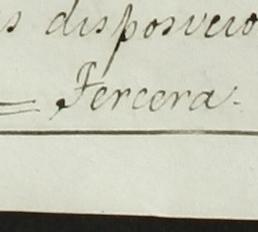 s disposveio
= Fercera.